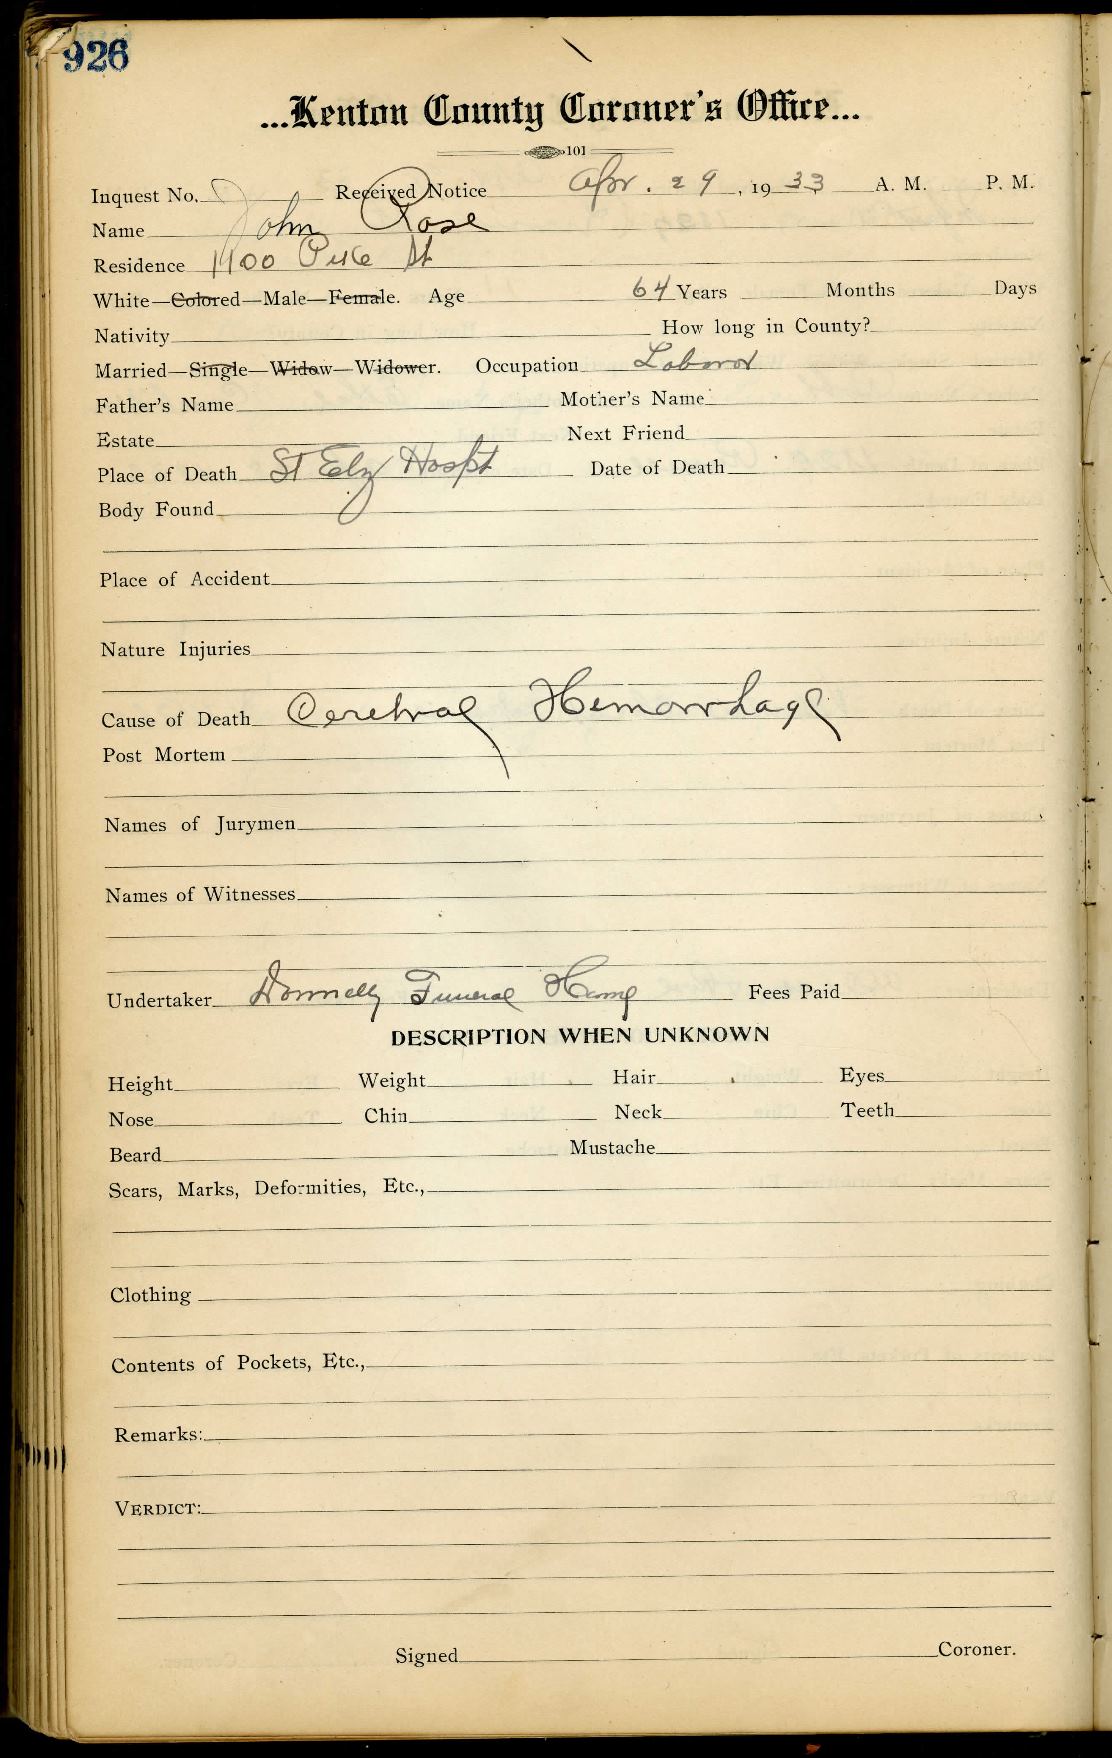 926
...Kenton County Coroner's Office...
101
Inquest No. Received Notice Apr. 29, 1933 A. M. P. M.
Name John Rose
Residence 1100 Pike St
White—Colored—Male—Female. Age 64 Years Months Days
Nativity How long in County?
Married—Single—Widow—Widower. Occupation Laboror
Father's Name Mother's Name
Estate Next Friend
Place of Death St Elz Hospt Date of Death
Body Found
Place of Accident
Nature Injuries
Cause of Death Cerebral Hemorrhage
Post Mortem
Names of Jurymen
Names of Witnesses
Undertaker Donnelly Funeral Home Fees Paid
DESCRIPTION WHEN UNKNOWN
Height Weight Hair Eyes
Nose Chin Neck Teeth
Beard Mustache
Scars, Marks, Deformities, Etc.,
Clothing
Contents of Pockets, Etc.,
Remarks:
VERDICT:
Signed Coroner.